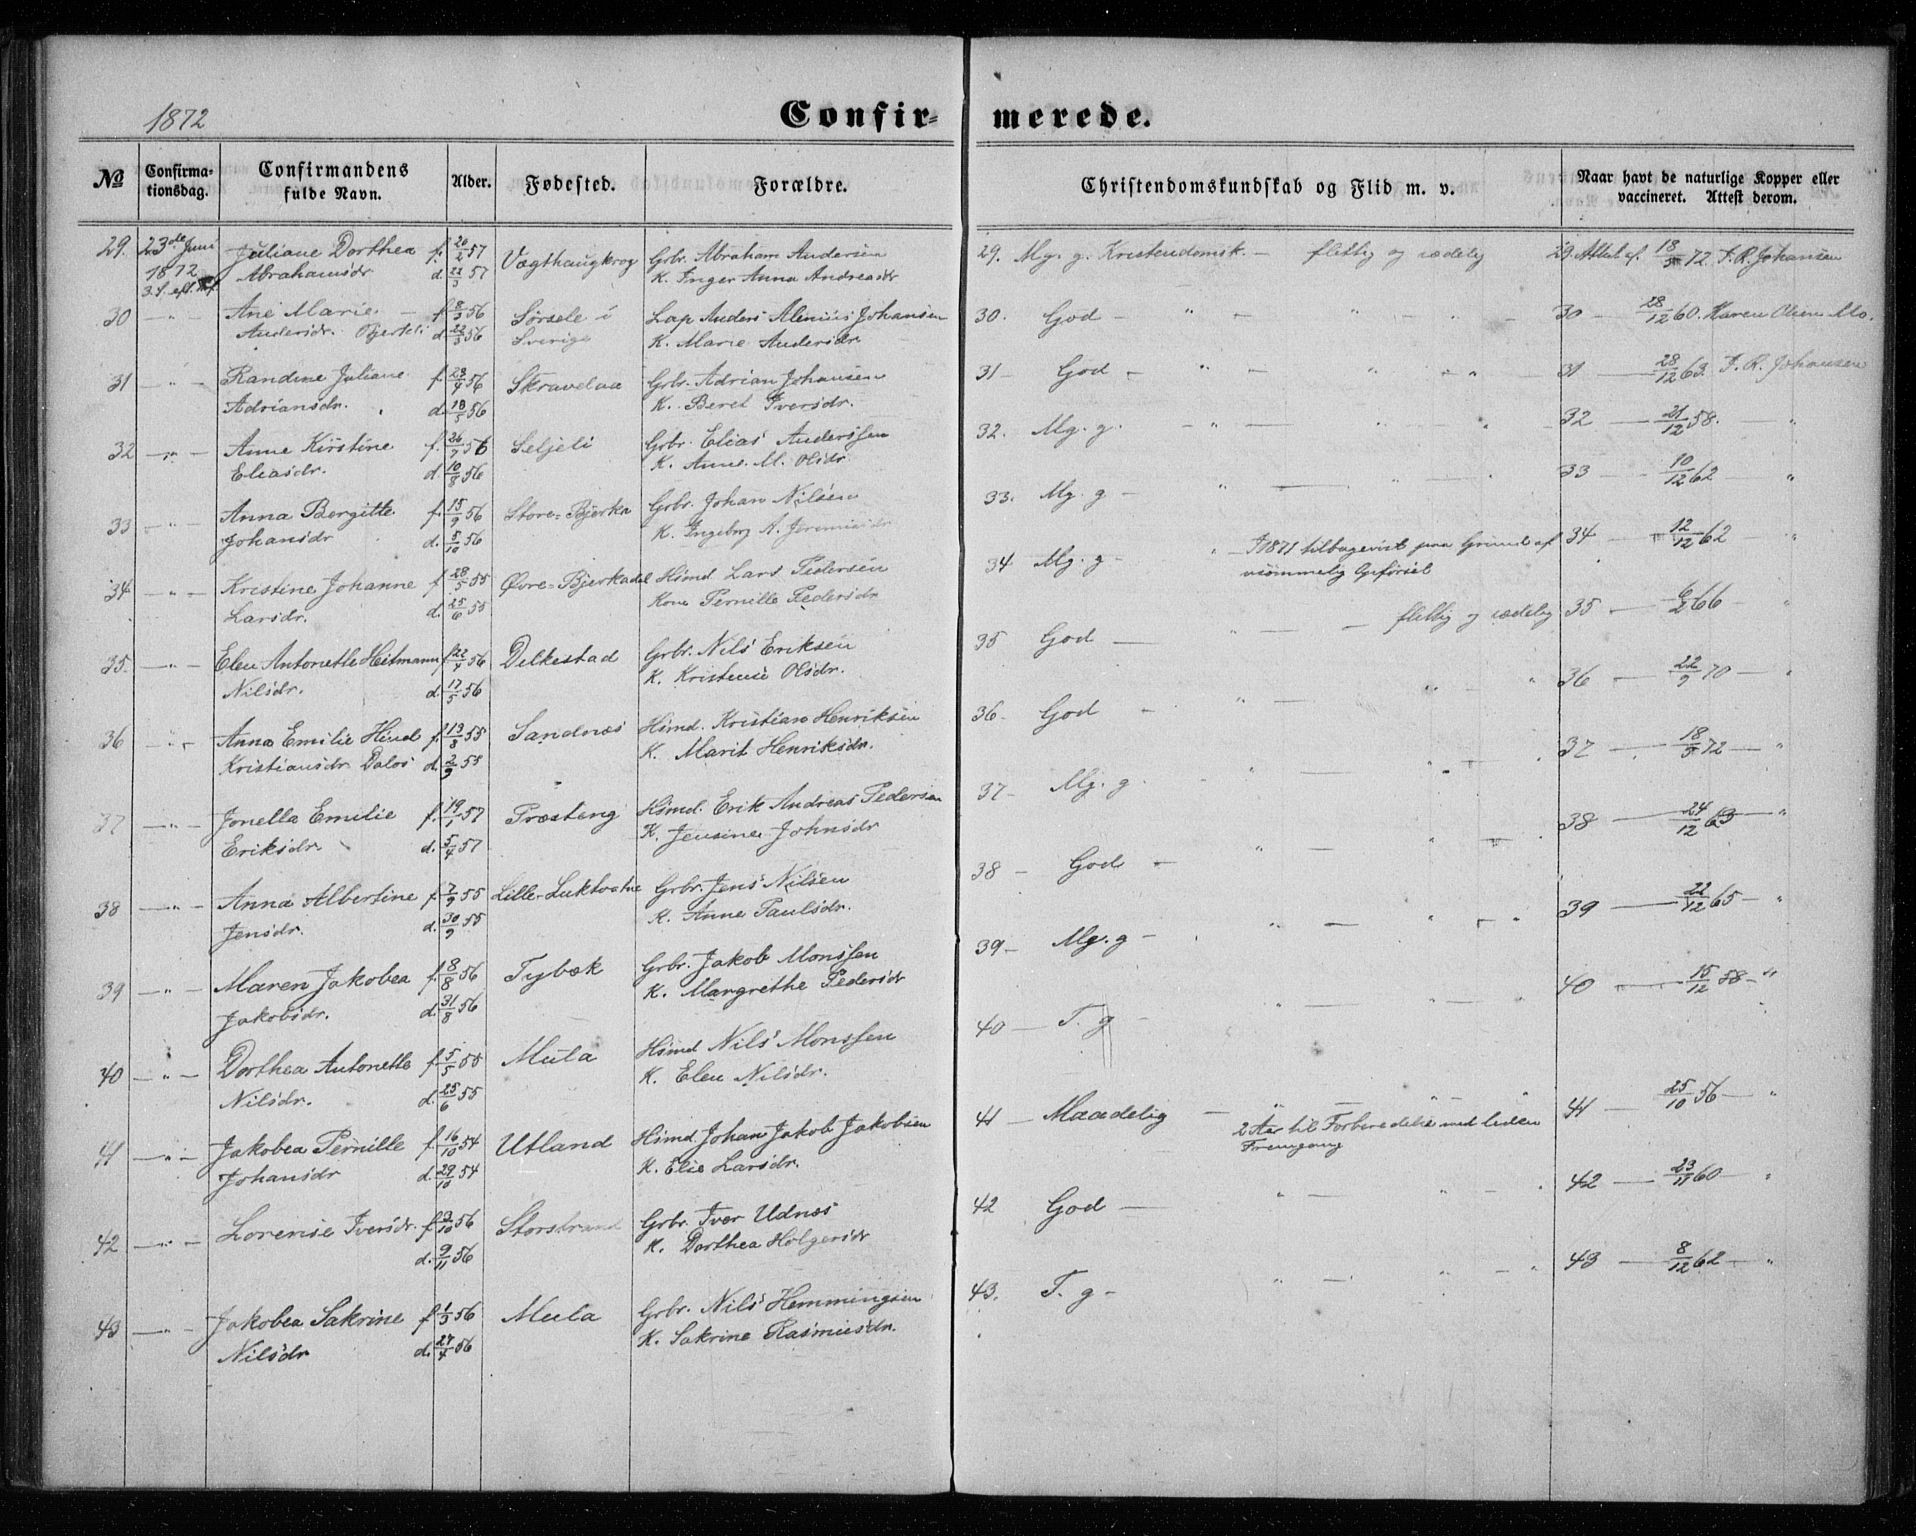 1872
Confir-
merede.
No
Confirma-
tionsdag.
Confirmandens
fulde Navn.
Alder.
Fødested.
Forældre.
Christendomskundskab og Flid m. v.
Naar havt de naturlige Kopper eller
vaccineret. Attest derom.
29. 23de Juni Juliane Dorthea f. 20/2 57 Vægthaugkrog Grbr. Abraham Andersen
1872 Abrahamsdr d. 22/3 57 K. Inger Anna Andreasdr
3. S. eft. Tr.
30 - " - Ane Marie f. 8/3 56 Sørsele i Lap Anders Alenius Johansen
Andersdr. Bjerkli d. 22/3 56 Sverige K. Marie Andersdr
31 - " - Randine Juliane f. 23/4 56 Skravlaa Grbr. Adrian Johansen
Adriansdr. d. 18/5 56 K. Beret Iversdr.
32 - " - Anne Kirstine f. 26/7 56 Seljeli Grbr. Elias Anderssen
Eliasdr. d. 10/8 56 K. Anne M. Olsdr.
33 - " - Anna Bergitte f. 15/9 56 Store-Bjerka Grbr. Johan Nilsen
Johansdr d. 5/10 56 K. Ingeborg A. Jeremiasdr
34 - " - Kristine Johanne f. 28/5 55 Øvre-Bjerkadal Hsmd Lars Pedersen
Larsdr. d. 25/6 55 Kone Pernille Pedersdr
35. - " - Elen Antonette Heitmann f. 22/4 56 Dilkestad Grbr. Nils Eriksen
Nilsdr. d. 17/5 56 K. Kristense Olsdr.
36 - " - Anna Emilie Hind f. 13/8 55 Sandnæs Hsmd. Kristian Henriksen
Kristiansdr Dalos d. 2/9 55 K. Marit Henriksdr.
37 - " - Jonella Emilie f. 19/1 57 Præsteng Hsmd. Erik Andreas Pedersen
Eriksdr d. 5/4 57 K. Jensine Johnsdr
38 - " - Anna Albertine f. 7/9 55 Lille-Luktvatne Grbr. Jens Nilsen
Jensdr. d. 30/9 55 K. Anne Paulsdr.
39 - " - Maren Jakobea f. 8/8 56 Tybæk Grbr. Jakob Monssen
Jakobsdr. d. 31/8 56 K. Margrethe Pedersdr
40 - " - Dorthea Antonette f. 5/5 55 Mula Hsmd Nils Monssen
Nilsdr. d. 25/6 55 K. Elen Nilsdr.
41 - " - Jakobea Pernille f. 16/10 54 Utland Hsmd. Johan Jakob Jakobsen
Johansdr d. 29/10 54 K. Elie Larsdr.
42 - " - Lorense Iversdr. f. 3/10 56 Storstrand Grbr. Iver Udnæs
d. 9/11 56 K. Dorthea Holgersdr
43 - " - Jakobea Sakrine f. 1/3 56 Mula Grbr. Nils Hemmingsen
Nilsdr d. 27/4 56 K. Sakrine Rasmusdr.
29. Mg. g. Kristendomsk. - flittig og sædelig 29. Attest af 18/5 72 F. R. Johansen
30. God - " - " - " 30 - 28/12 60. Maren Olsen Mo.
31 - God - " - " - " 31 - 28/12 63. F. R. Johansen
32. Mg. g. - " - " " 32 - 21/12 58. "
33. Mg. g - " - " " 33 - 10/12 62 "
34 Mg. g - " I 1871 tilbagevist paa Grund af 34 - 12/12 62 "
usømmelig Opførsel
35 God - " - flittig og sædelig 35 - 6/2 66 - "
36. God - " - " - " 36 - 22/9 70 - "
37 - Mg. g - " - " - " 37 - 18/5 72 - "
38 - God - " - " - " 38 - 24/12 63 - "
39 - Mg. g - " - " - " 39 - 22/12 65 - "
40 - T. g - " - " - " 40 - 15/12 58 - "
41 - Maadelig - " - " - " 41 - 25/10 56 - "
2 Aar til Forberedelse med liden
Fremgang
42 God - " - " - " 42 - 23/11 60 - "
43. T. g - " - " - " 43 - 8/12 62 - "